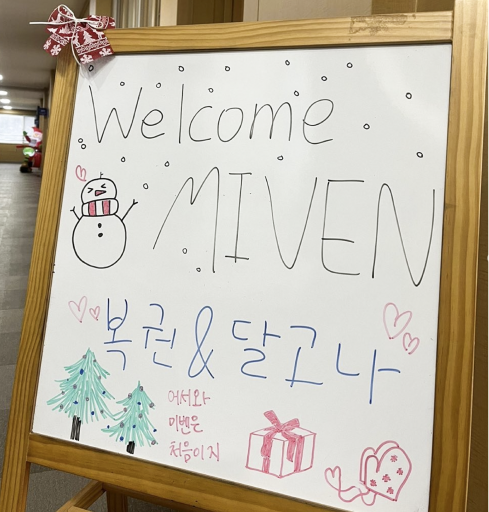 Welcome
MIVEN
복권 & 달고나
어서와
미벤은
처음이지